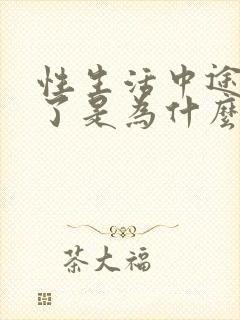 性生活中途
了是為什麼
茶大福